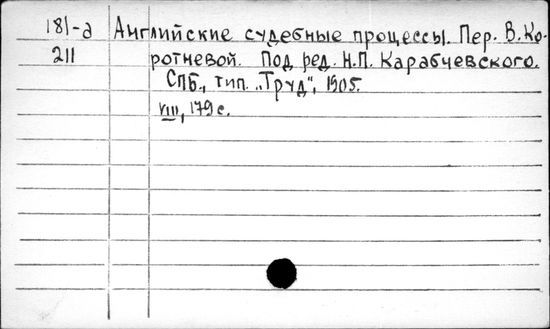 181-а Английские судебные процессы. Пер. В. Ко-
211 ротневой. Под ред. Н.П. Карабчевского.
СПБ., тип. „Труд", 1905.
VIII, 179 с.